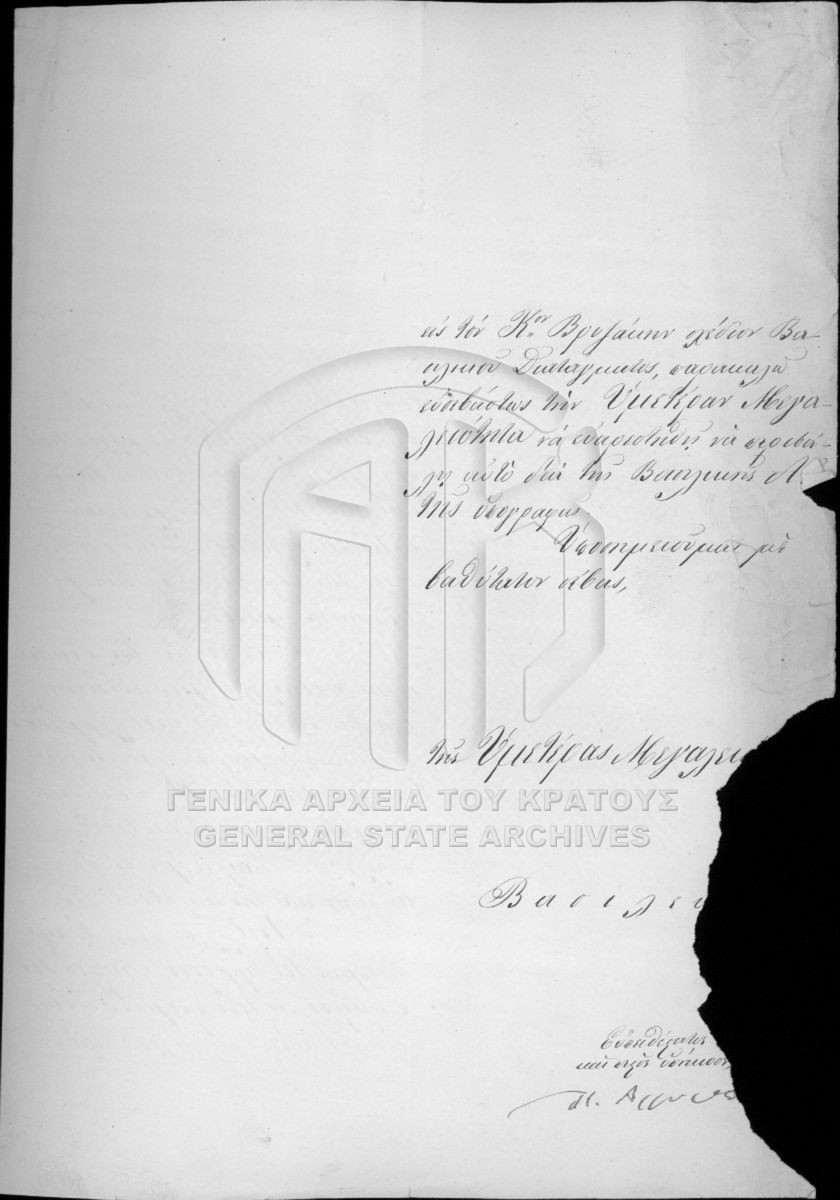 εἰς τὸν Κ.ον Βρυζάκην σχέδιον Βα-
σιλικοῦ Διατάγματος, παρακαλῶ
εὐσεβάστως τὴν Ὑμετέραν Μεγα-
λειότητα νὰ εὐαρεστηθῇ νὰ περιβά-
λῃ αὐτὸ διὰ τῆς Βασιλικῆς Α
της ὑπογραφῆς.
Ὑποσημειοῦμαι μὲ
βαθύτατον σέβας,
τῆς Ὑμετέρας Μεγαλει
Βασιλει
ΓΕΝΙΚΑ ΑΡΧΕΙΑ ΤΟΥ ΚΡΑΤΟΥΣ
GENERAL STATE ARCHIVES
Εὐπειθέστατος
καὶ πιστὸς ὑπήκοος